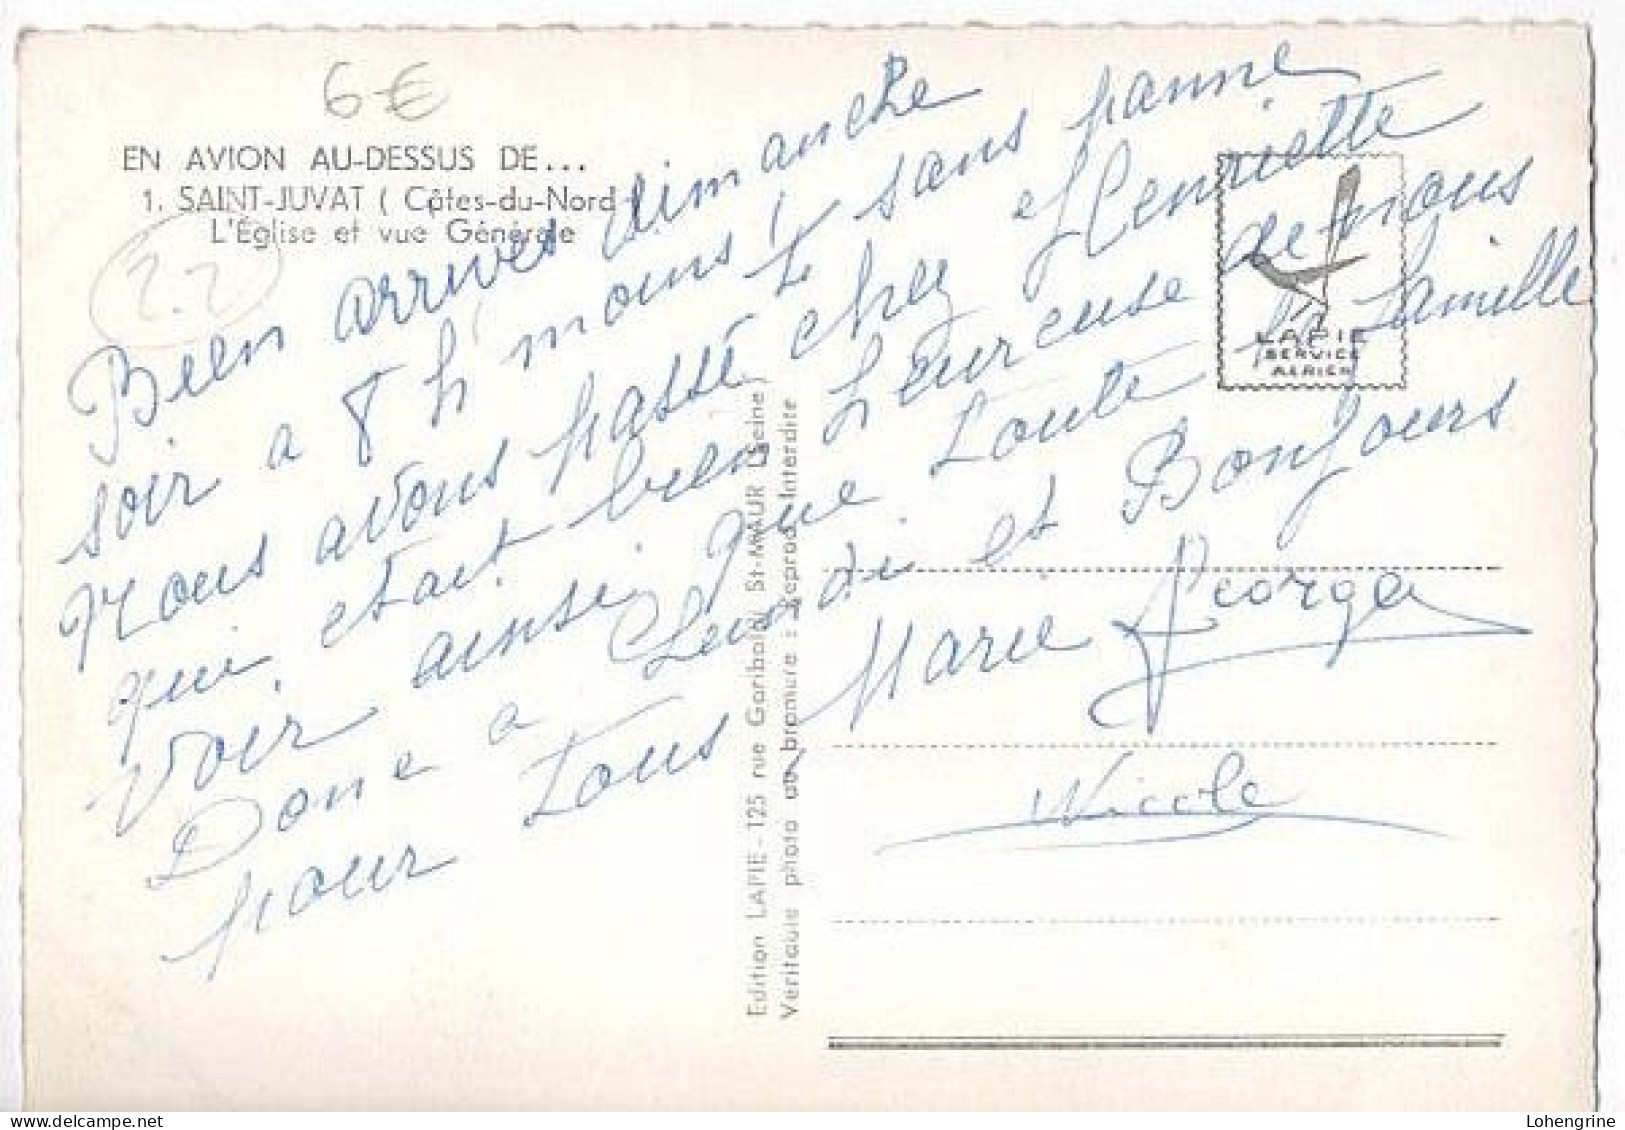 6 €
EN AVION AU-DESSUS DE...
1. SAINT-JUVAT ( Côtes-du-Nord )
L'Église et vue Générale
22
Bien arrives dimanche
soir a 8 h nous sans panne
Nous avons passé chez Henriette
qui etait bien heureuse de nous
voir, ainsi que toute la famille
Done a Leudi et Bonjours
pour tous, Marie George
Nicole
LAPIE
SERVICE
AERIEN
Edition LAPIE - 125 rue Garibaldi St-MAUR (Seine)
Véritable photo au bromure : Reprod. Interdite
Lohengrine